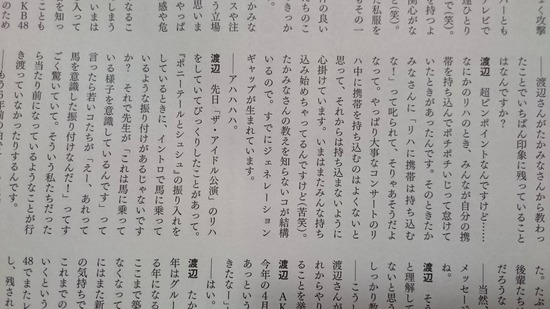 よく攻撃
バーとも
テレビで
を持つよ
関心がな
た私服を
もその一
の良い
きっか
かみな
スや注
う立場
思いま
やっぱ
感や危
なるこ
いまは
を知っ
KB48
のため
——渡辺さんがたかみなさんから教わっ
たことでいちばん印象に残っていること
はなんですか?
渡辺 超ピンポイントなんですけど……
なにかのリハのとき、みんなが自分の携
帯を持ち込んでポチポチいじって怠けて
いたときがあったんです。そのときたか
みなさんに「リハに携帯は持ち込む
な!」って叱られて、そりゃあそうだよ
なって。やっぱり大事なコンサートのリ
ハ中に携帯を持ち込むのはよくないと
思って、それからは持ち込まないように
心掛けています。いまはまたみんな持ち
込み始めちゃってるんですけど(苦笑)。
たかみなさんの教えを知らないコが結構
いるので。すでにジェネレーション
ギャップが生まれています。
——アハハハハ。
渡辺 先日『ザ・アイドル公演』のリハ
をしていてびっくりしたことがあって。
『ポニーテールとシュシュ』の振り入れを
しているときに、イントロで馬に乗って
いるような振り付けがあるじゃないです
か? それで先生が「これは馬に乗って
いる様子を意識しているんです」って
言ったら若いコたちが「えー、あれって
馬を意識した振り付けなんだ!」ってす
ごく驚いていて。そういう私たちだった
ら当たり前になっているようなことが行
き渡っていなかったりするんです。
た。た
後輩たち
だろうな
——当然、
メッセージ
ね。
渡辺 そう
と理解して
ないと思う
しっかり教
——こうし
渡辺さんが
れからやり
ることを挙
渡辺 AK
今年の4月
あっという
きたなー」
——はい。
渡辺 たか
年はグルー
る年になる
ここまで築
なくなって
にはまた新
の気持ちで
これまでの
いくという
48でまたレ
し、残され